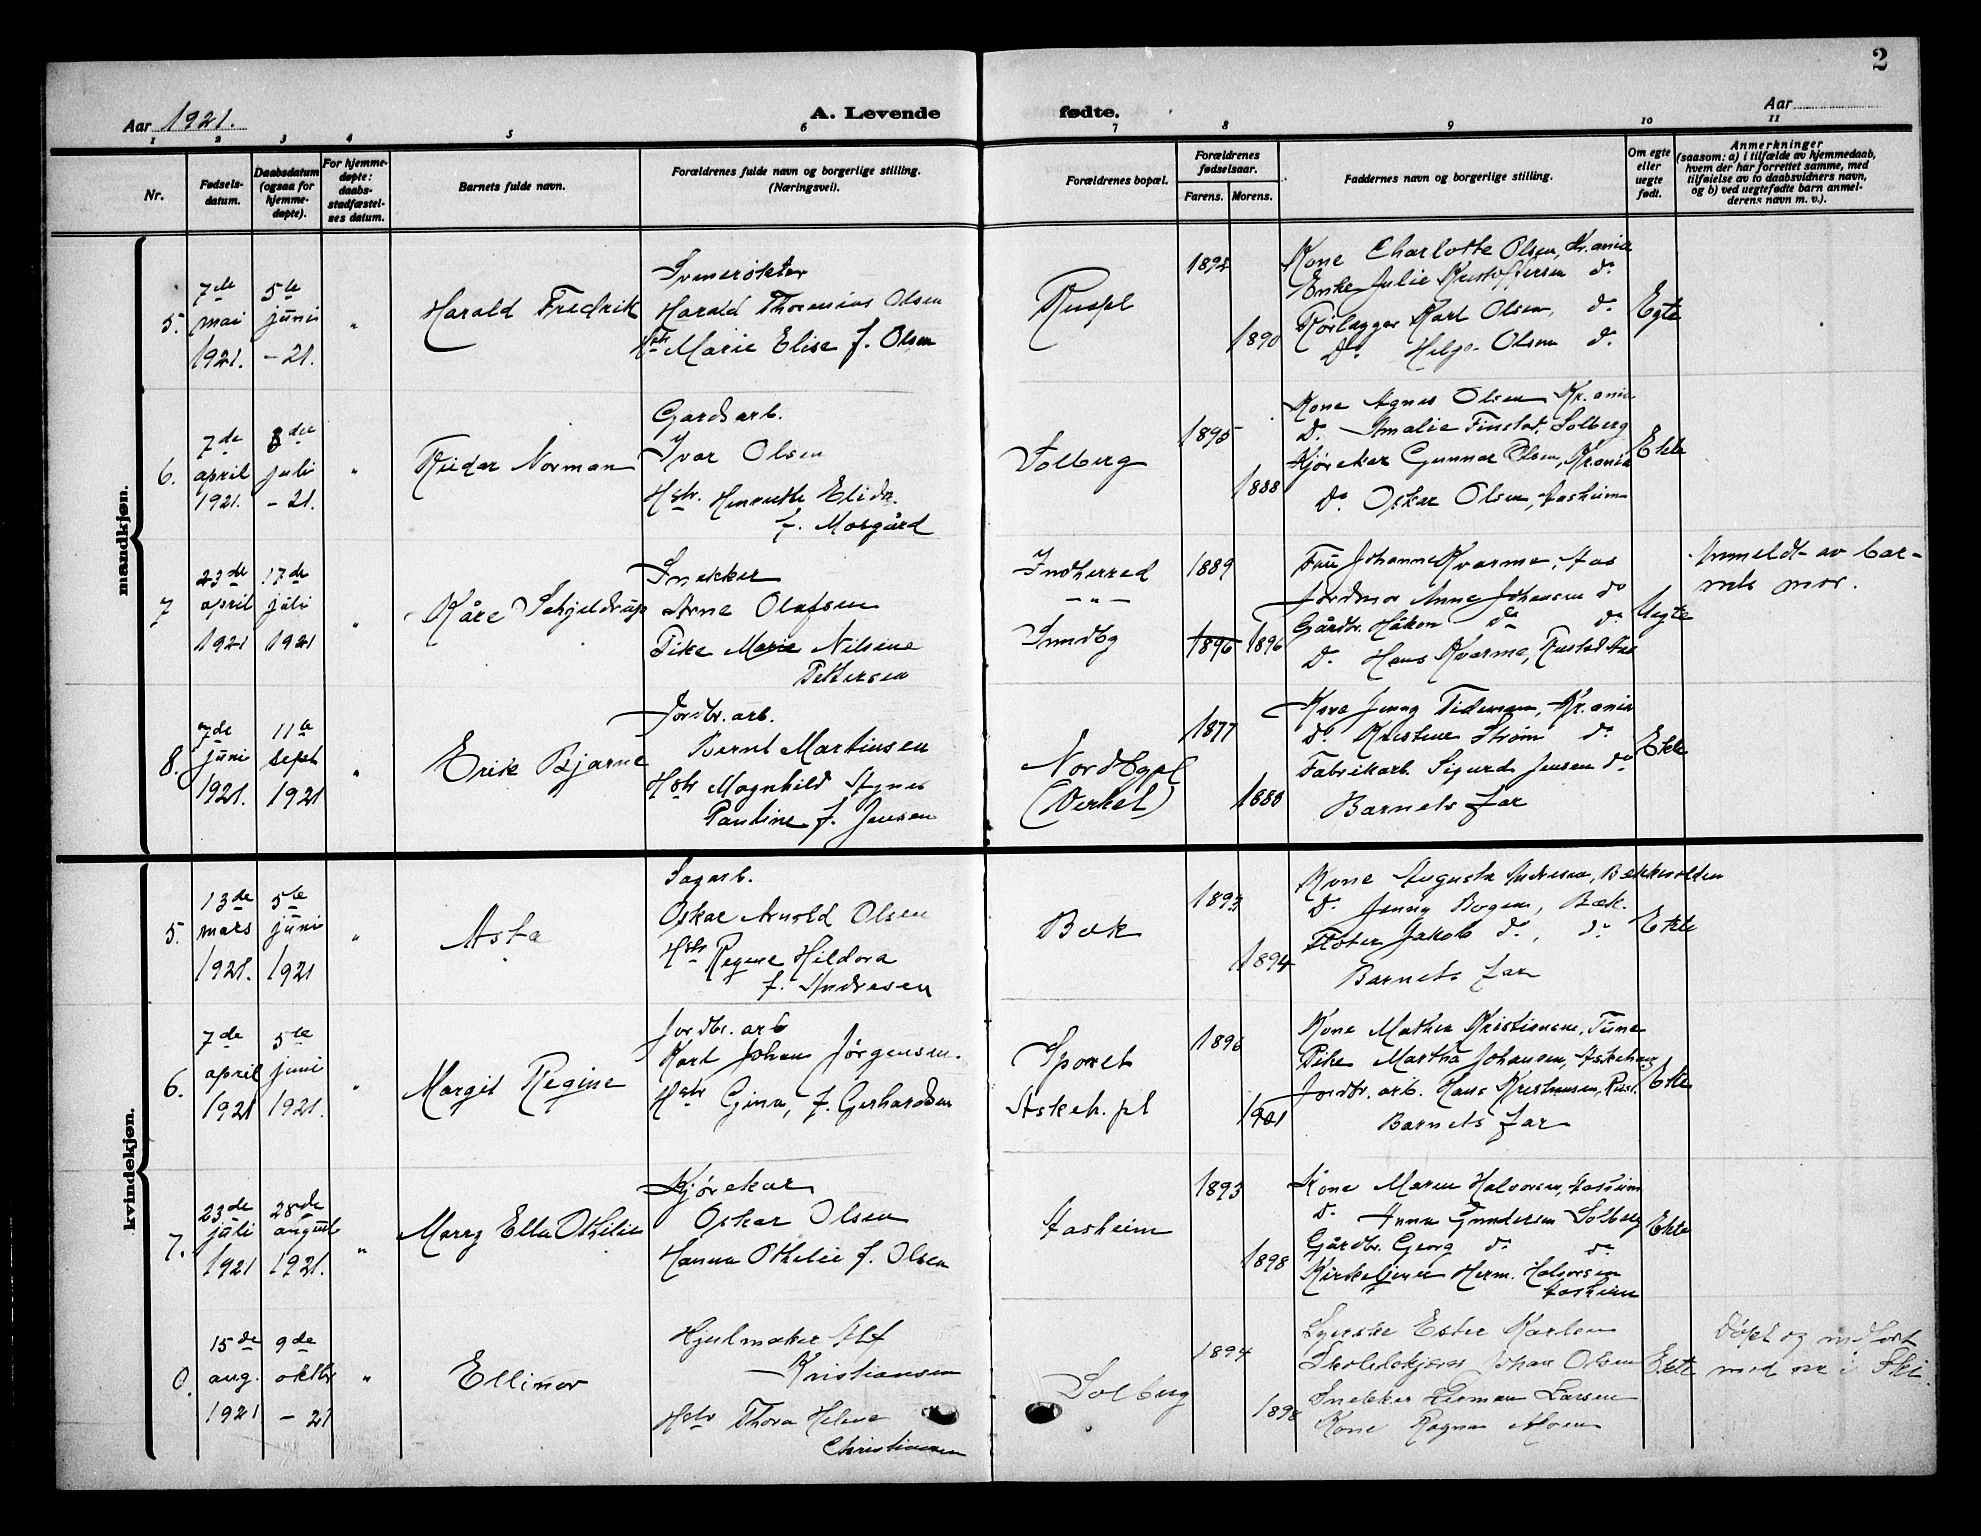 2
Aar 1921.
A. Levende
fødte.
Aar
1 2 3 4 5 6 7 8 9 10 11
Nr.
Fødsels-
datum.
Daabsdatum
(ogsaa for
hjemme-
døpte).
For hjemme-
døpte:
daabs-
stadfæstel-
ses datum.
Barnets fulde navn.
Forældrenes fulde navn og borgerlige stilling.
(Næringsvei).
Forældrenes bopæl.
Forældrenes
fødselsaar.
Farens. Morens.
Faddernes navn og borgerlige stilling.
Om egte
eller
uegte
født.
Anmerkninger
(saasom: a) i tilfælde av hjemmedaab,
hvem der har forrettet samme, med
tilføielse av to daabsvidners navn,
og b) ved uegtefødte barn anmel-
derens navn m. v.).
mandkjøn.
5.
7de
mai
1921.
5te
juni
-21.
"
Harald Fredrik
Svinerøkter
Harald Thorenius Olsen
Hstr Marie Elise f. Olsen
Ruspl
1892
1890
Kone Charlotte Olsen, Kr.ania
Enke Julie Kristoffersen do
Rørlægger Karl Olsen, do
Do Helge Olsen do
Egte
6.
7de
april
1921.
3die
juli
-21.
"
Reidar Norman
Gardsarb.
Ivar Olsen
Hstr. Henriette Elida
f. Morgård
Solberg
1895
1888
Kone Agnes Olsen Kr.ania
Do Amalie Finstad, Solberg
Kjørekar Gunnar Olsen, Kr.ania
Do Oskar Olsen, Aasheim
Ekte
7
23de
april
1921
17de
juli
1921
"
Kåre Schjeldrup
Snekker
Arne Olafsen
Pike Marie Nilsine
Pettersen
Indherred
- " -
Sundby
1889
1896 1896
Frü Johanne Kvarme, Aas
Jordmor Anne Johansen do
Gårdbr. Håkon do do
Do Hans Kvarme, Rustad Aas
Uegte
Anmeldt av bar-
nets mor.
8.
7de
juni
1921.
11te
sept
1921
"
Erik Bjarne
Jordbr. arb.
Bernt Martinsen
Hstr Magnhild Agnes
Pauline f. Jensen
Nordbypl
(Virket)
1877
1888
Kone Jenny Tidemam, Kr.ania
Do Kristine Strøm do
Fabrikarb. Sigurd Jensen do
Barnets far
Ekte
kvindekjøn.
5.
13de
mars
1921.
5te
juni
1921
"
Asta
Sagarb.
Oskar Arnold Olsen
Hstr Regine Hildora
f. Andresen
Bæk
1893
1894
Kone Augusta Andresen, Bekkevolden
Do Jenny Bogen, Bæk.
Fløter Jakob do, do
Barnets far
Ekte
6.
7de
april
1921
5te
juni
1921.
"
Margit Regine
Jordbr. arb
Karl Johan Jørgensen.
Hstr Gina, f. Gerhardsen
Sporet
Askeh. pl
1896
1901
Kone Mathea Kristiansen, Tüne
Pike Martha Johansen, Askehaug
Jordbr. arb. Hans Kristiansen, Rust.
Barnets far
Ekte
7.
23de
juli
1921
28de
august
1921.
"
Marry Ella Othilie
Kjørekar
Oskar Olsen
Hanna Othilie f. Olsen
Aasheim
1893
1898
Kone Maren Halvorsen, Aasheim
Do Anna Gundersen Solberg
Gårdbr. Georg do do
Kirketjener Herm. Halvorsen
Aasheim
Ekte
0.
15de
aug.
1921
9de
oktbr
-21
"
Ellinor
Hjulmaker Alf
Kristiansen
Hstr Thora Helene
Christiansen
Solberg
1894
1898
Syerske Ester Karlsen
Johan Olsen
Snekker Herman Larsen
Kone Ragna
Ekte
Døpt og indført
med nr i Ski.